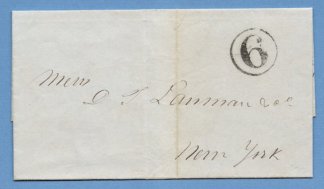 6
Messrs
D T Lanman & Co
New York